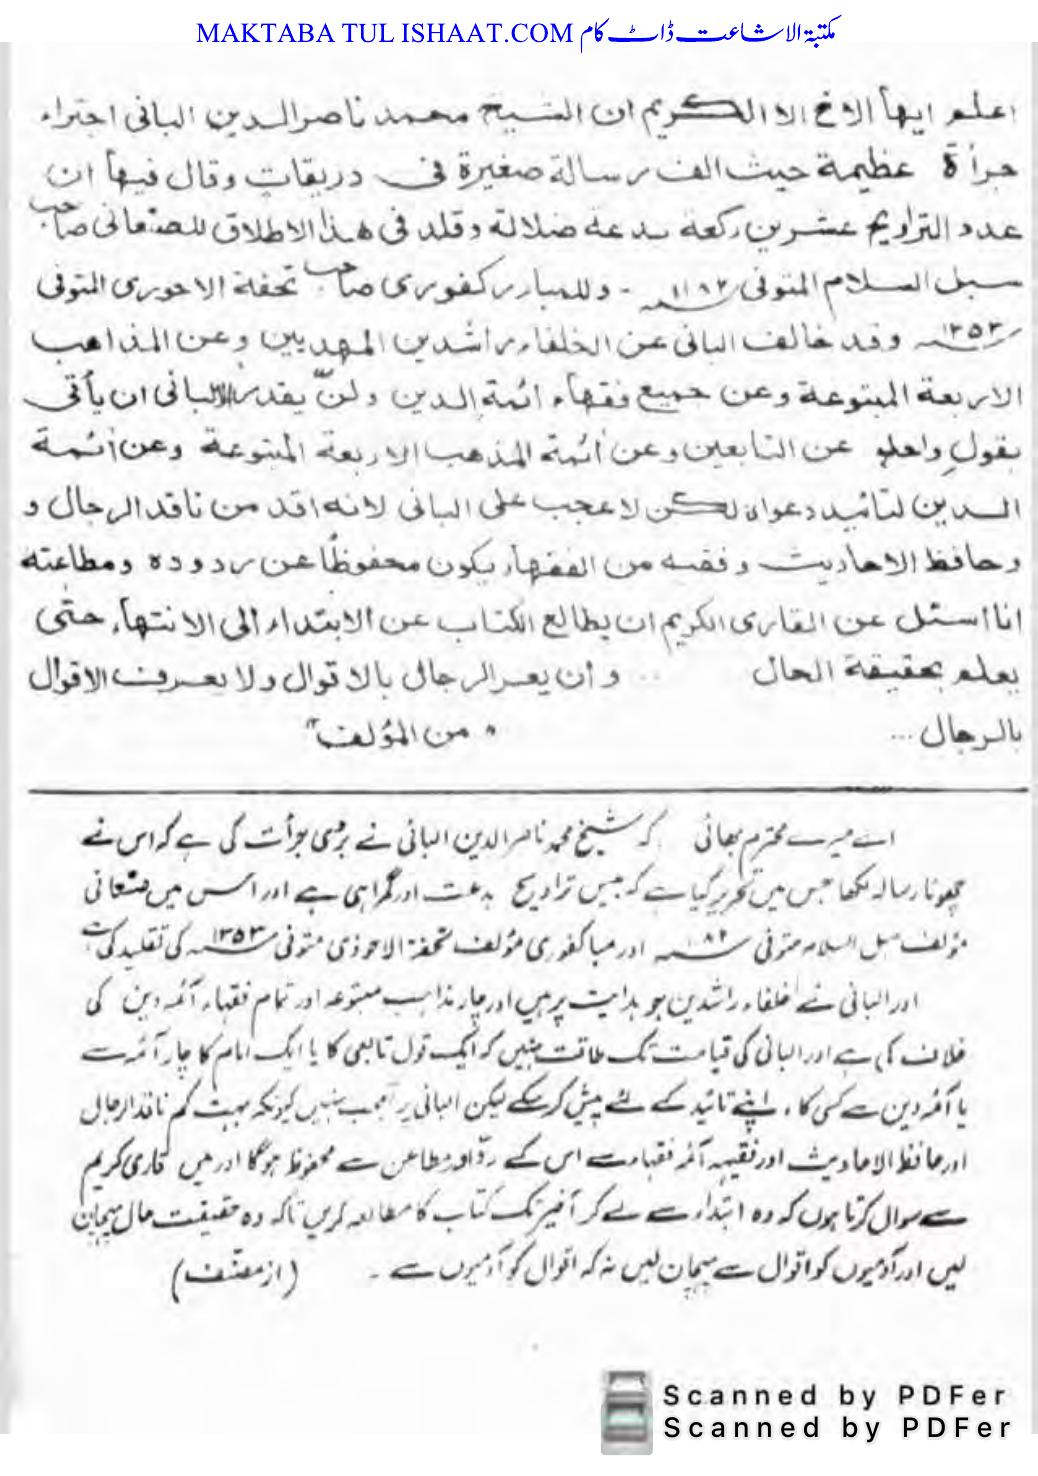 MAKTABA TUL ISHAAT.COM مکتبۃ الاشاعت ڈاٹ کام
اعلم ايها الاخ الا الكريم ان الشيخ محمد ناصر الدين البانى اجتراء
جرأة عظيمة حيث الف رسالة صغيرة فى وريقات وقال فيها ان
عدد التراويح عشرين ركعة بدعة ضلالة وقلد فى هذا الاطلاق للصنعانى صاحب
سبل السلام المتوفى ١١٨٢ - وللمباركفورى صاحب تحفة الاحوزى المتوفى
١٣٥٣ وقد خالف البانى عن الخلفاء راشدين المهديين وعن المذاهب
الاربعة المتبوعة وعن جميع فقهاء ائمة الدين ولن يقدر الالبانى ان يأتى
بقول واحد عن التابعين وعن أئمة المذهب الاربعة المتبوعة وعن أئمة
الدين لتائيد دعواه لكن لا عجب على البانى لانه اقد من ناقد الرجال و
وحافظ الاحاديث وفقيه من الفقهاء يكون محفوظا عن ردوده ومطاعنه
انا اسئل عن القارى الكريم ان يطالع الكتاب عن الابتداء الى الانتهاء حتى
يعلم بحقيقة الحال .. و ان يعر الرجال بالاقوال ولا يعرف الاقوال
بالرجال ... " من المؤلف "
اے میرے محترم بھائی کہ شیخ محمد ناصر الدین البانی نے بڑی جرأت کی ہے کہ اس نے
چھوٹا رسالہ لکھا جس میں تحریر کیا ہے کہ بیس تراویح بدعت اور گمراہی ہے اور اس میں صنعانی
مؤلف سبل السلام متوفی ١٨٢ اور مباکفوری مؤلف تحفة الاحوذی متوفی ١٣٥٣ کی تقلید کی ہے
اور البانی نے خلفاء راشدین جو ہدایت پر ہیں اور چار مذاہب متبوعہ اور تمام فقہاء آئمہ دین کی
خلاف کی ہے اور البانی کی قیامت تک طاقت نہیں کہ ایک قول تابعی کا یا ایک امام کا چار آئمہ سے
یا آئمہ دین سے کسی کا، اپنے تائید کے لئے پیش کر سکے لیکن البانی پر تعجب نہیں کیونکہ بہت کم ناقد الرجال
اور حافظ الاحادیث اور فقیہہ آئمہ فقہاء سے اس کے ردّ او مطاعن سے محفوظ ہوگا اور میں قاری کریم
سے سوال کرتا ہوں کہ وہ ابتداء سے لے کر آخیر تک کتاب کا مطالعہ کریں تاکہ وہ حقیقت حال پہچان
لیں اور آدمیوں کو اقوال سے پہچان لیں نہ کہ اقوال کو آدمیوں سے ۔ (از مصنف)
Scanned by PDFer
Scanned by PDFer